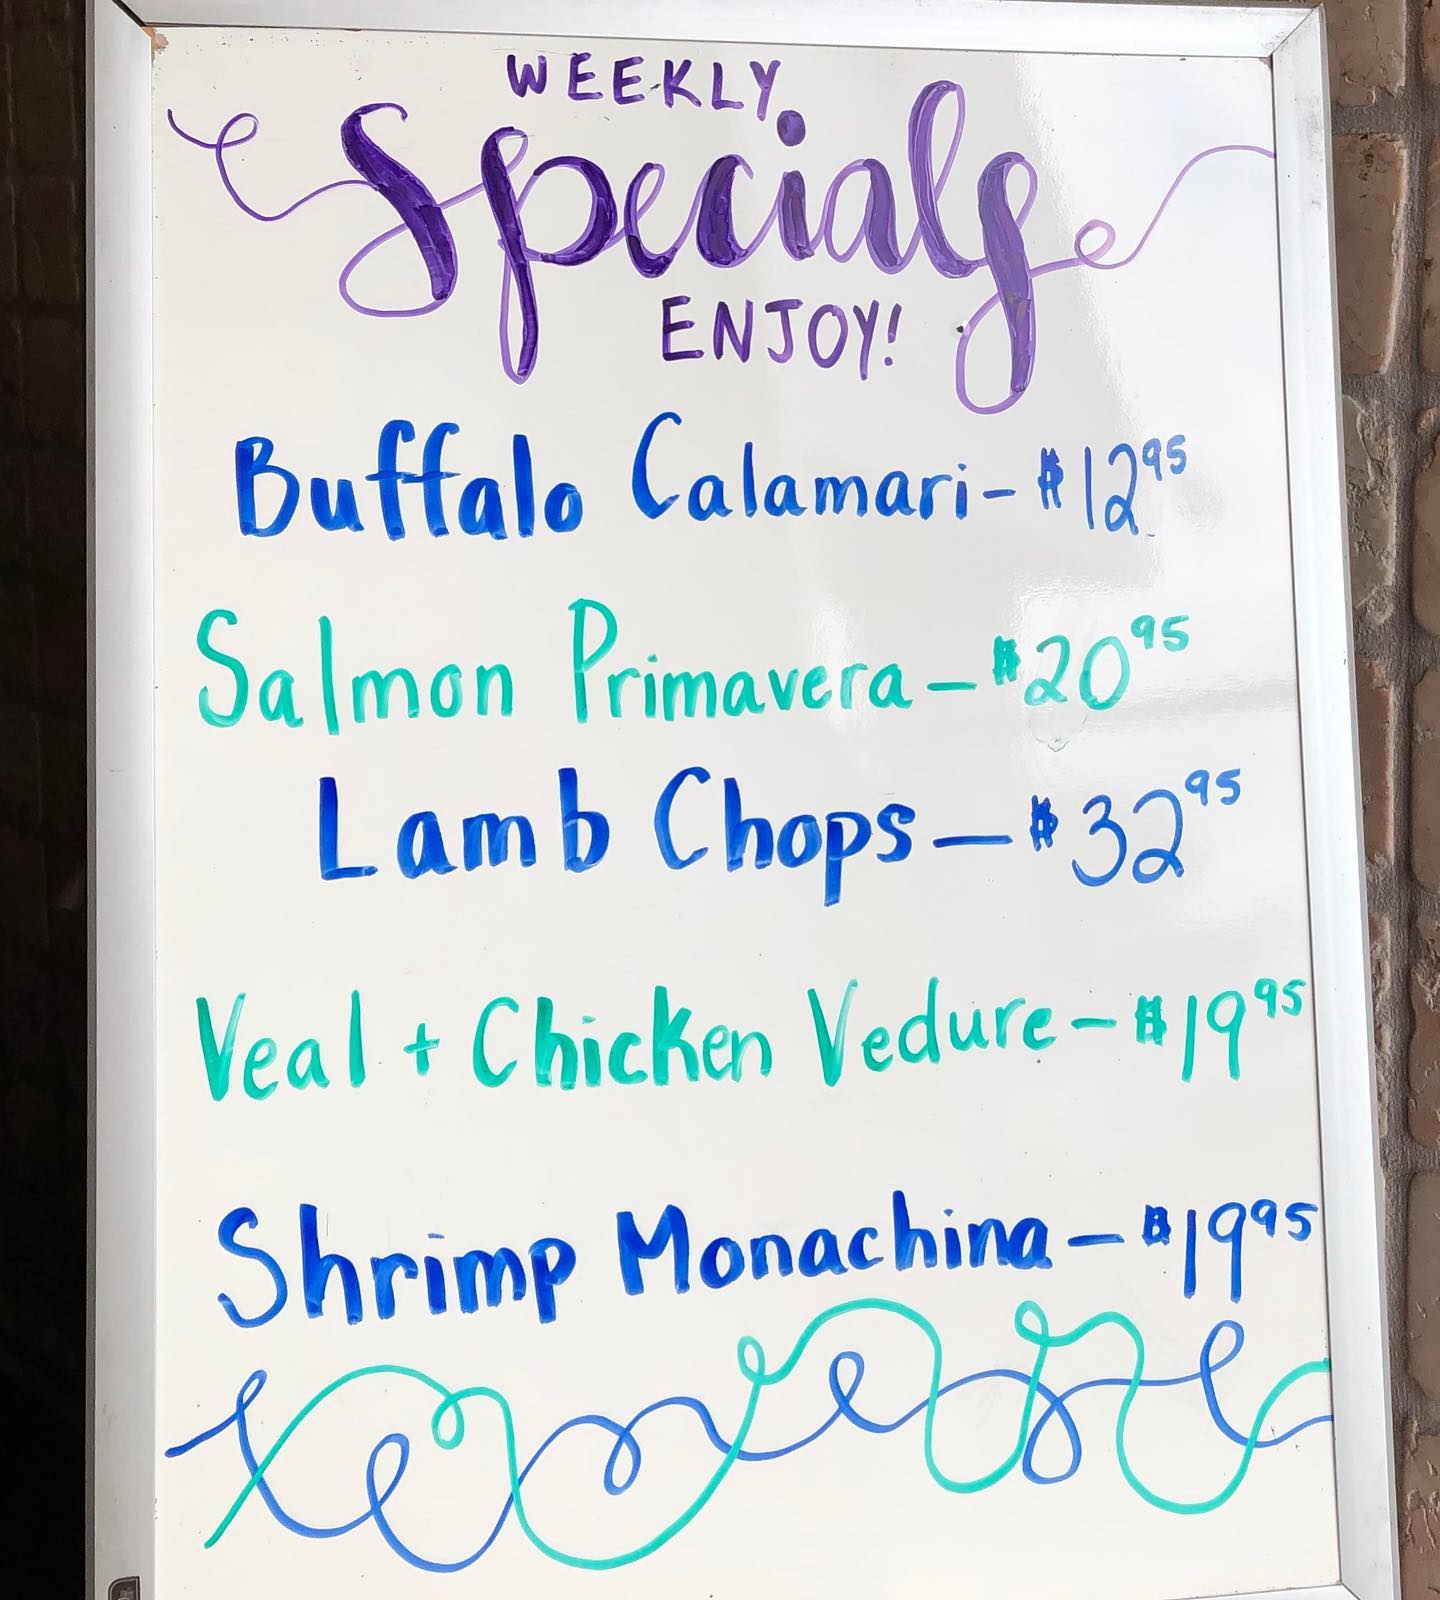 WEEKLY
Specials
ENJOY!
Buffalo Calamari - $12.95
Salmon Primavera - $20.95
Lamb Chops - $32.95
Veal + Chicken Vedure - $19.95
Shrimp Monachina - $19.95